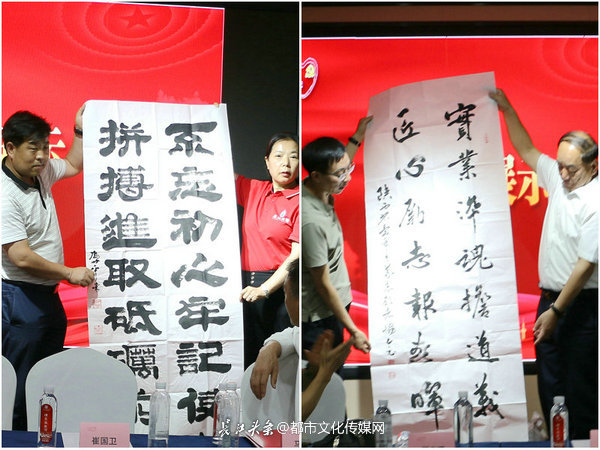 不忘初心牢記使
拼搏進取砥礪前
實業淬魂擔道義
匠心勵志報春暉
展
崔国卫
长江头条@都市文化传媒网